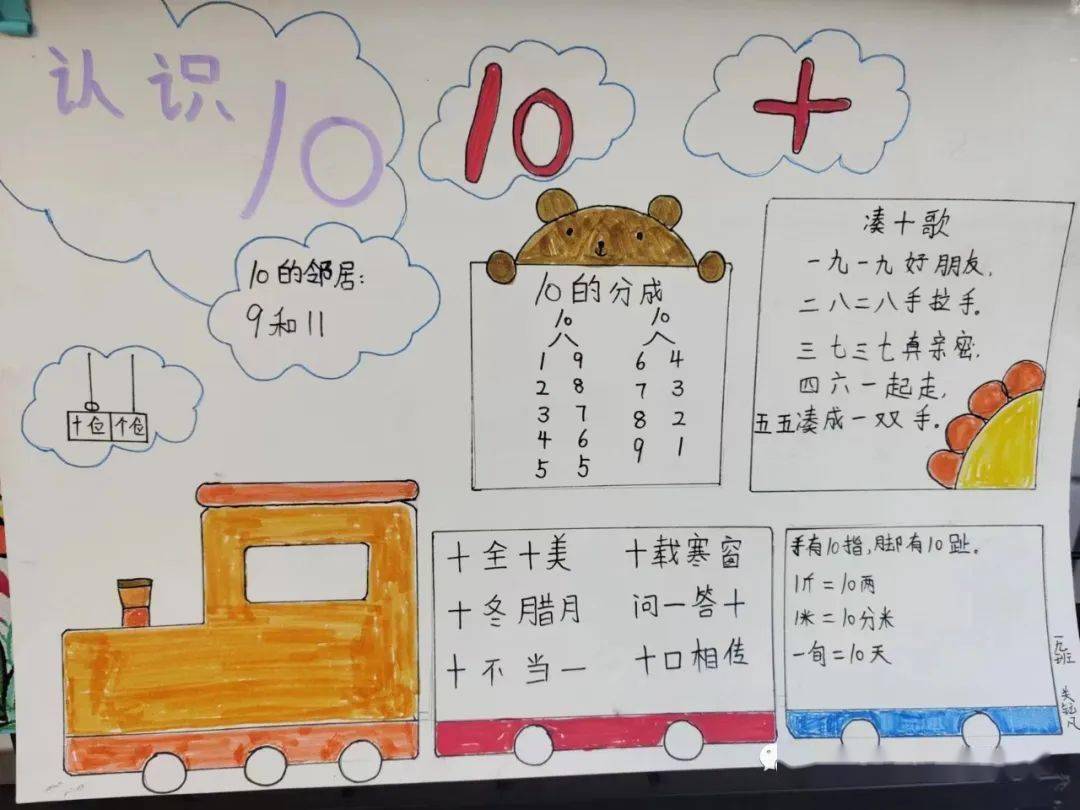 认识10
10
十
10的邻居:
9和11
十位 个位
10的分成
10 10
1 9 6 4
2 8 7 3
3 7 8 2
4 6 9 1
5 5
凑十歌
一九一九好朋友,
二八二八手拉手。
三七三七真亲密,
四六一起走,
五五凑成一双手。
十全十美 十载寒窗
十冬腊月 问一答十
十不当一 十口相传
手有10指,脚有10趾。
1斤=10两
1米=10分米
一旬=10天
一九班